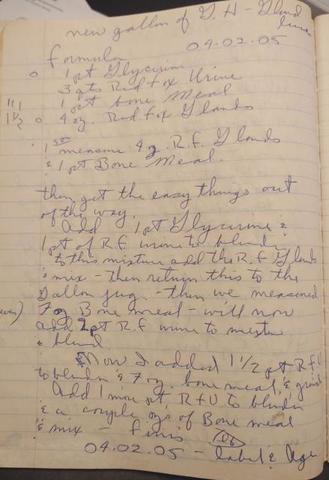 new gallon of G. H - Gland
lure
04.02.05
Formula
o 1 pt Glycerine
3 qts Red Fox Urine
1 pt Bone Meal
1 1/2 o 4 oz. Red Fox Glands
1st
measure 4 oz R.F. Glands
& 1 pt Bone Meal.
then get the easy things out
of the way.
Add 1 pt Glycerine &
1 pt of R.F. urine to blender
to this mixture add the R.F Glands
& mix - then return this to the
Gallon jug - then we measured
7 oz Bone meal - will now
add 2 pt R.F urine to mixture
& blend
Now I added 1 1/2 pt R F U
to blender & 7 oz. bone meal & grind
Add 1 more pt R F U to blender
& a couple ozs of Bone meal
& mix - finis
04.02.05 - label & Age